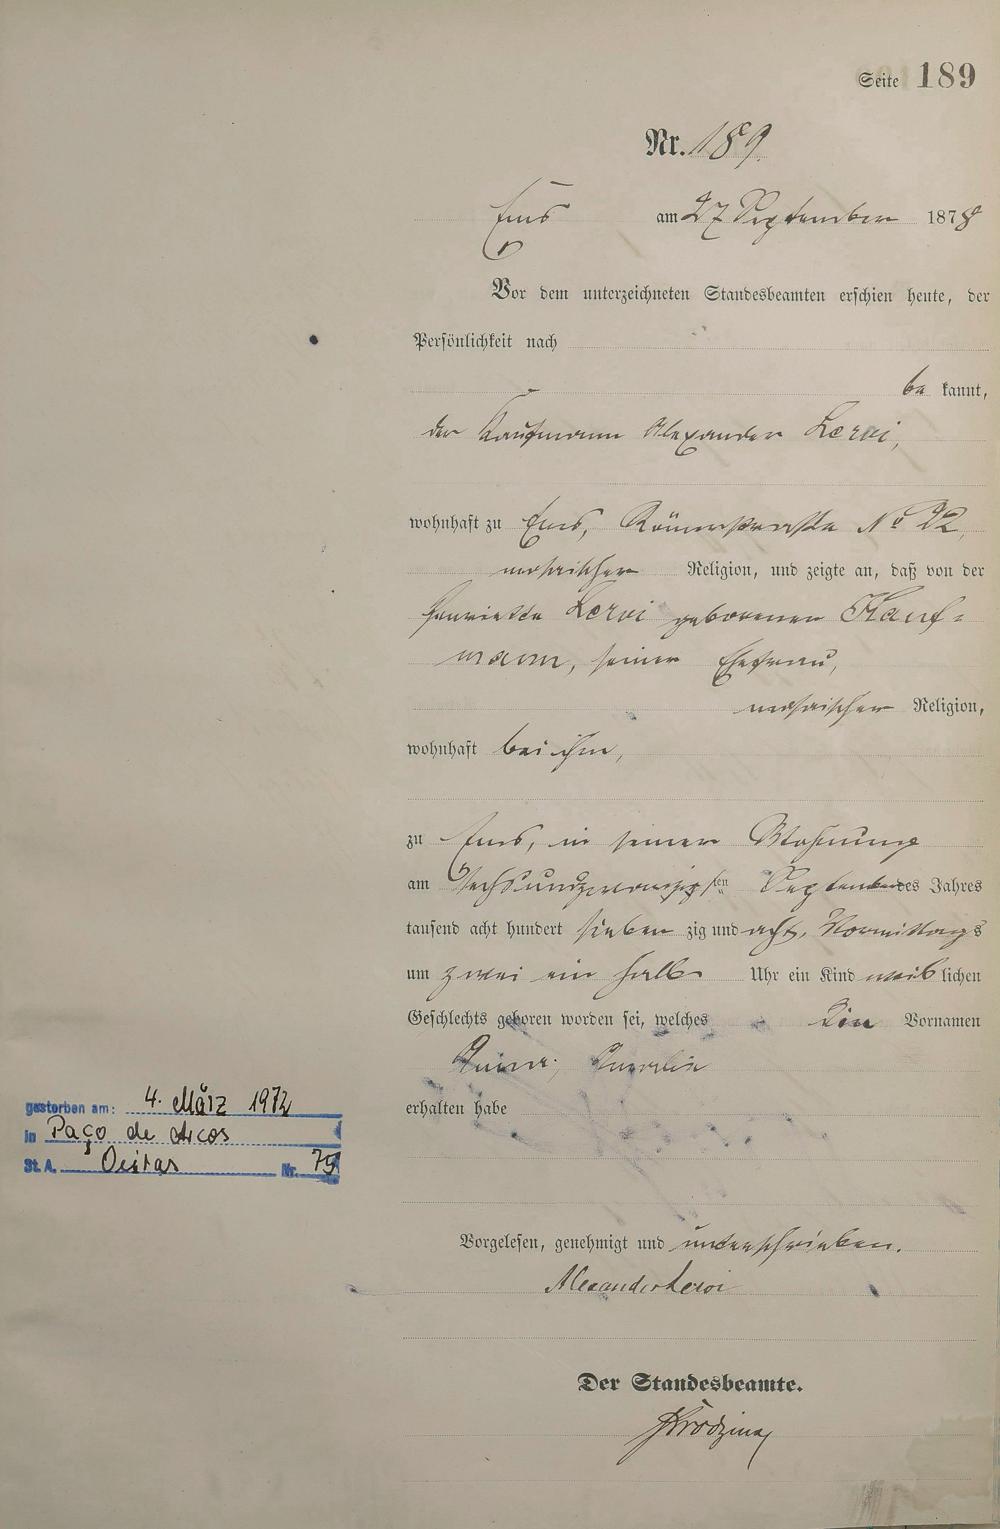 Seite 189
Nr. 189.
Ems am 27 September 1878
Vor dem unterzeichneten Standesbeamten erschien heute, der
Persönlichkeit nach
be kannt,
der Kaufmann Alexander Leroi,
wohnhaft zu Ems, Römerstraße No 22,
mosaischer Religion, und zeigte an, daß von der
Henriette Leroi geborenen Kauf=
mann, seiner Ehefrau,
mosaischer Religion,
wohnhaft bei ihm,
zu Ems, in seiner Wohnung
am sechsundzwanzigsten September des Jahres
tausend acht hundert sieben zig und acht, Vormittags
um zwei ein halb Uhr ein Kind weiblichen
Geschlechts geboren worden sei, welches die Vornamen
erhalten habe
Vorgelesen, genehmigt und unterschrieben.
Alexander Leroi
Der Standesbeamte.
gestorben am: 4. März 1972
in Paço de Arcos
St. A. Oeiras Nr. 75